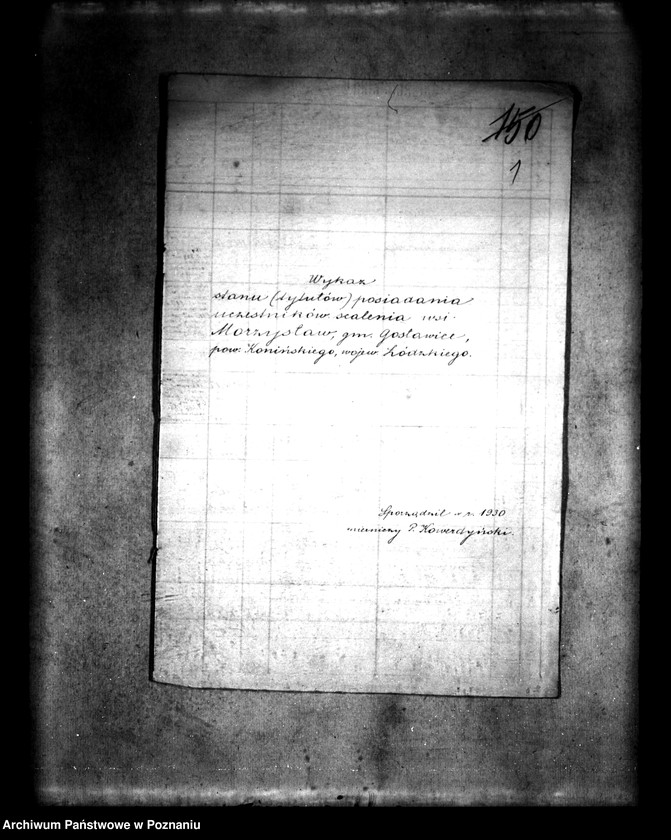 150
1
Wykaz
stanu (tytułów) posiadania
uczestników scalenia wsi
Morzysław, gm. Gosławice,
pow. Konińskiego, wojew. Łódzkiego.
Sporządził w r. 1930
mierniczy P. Kowerdyński.
Archiwum Państwowe w Poznaniu